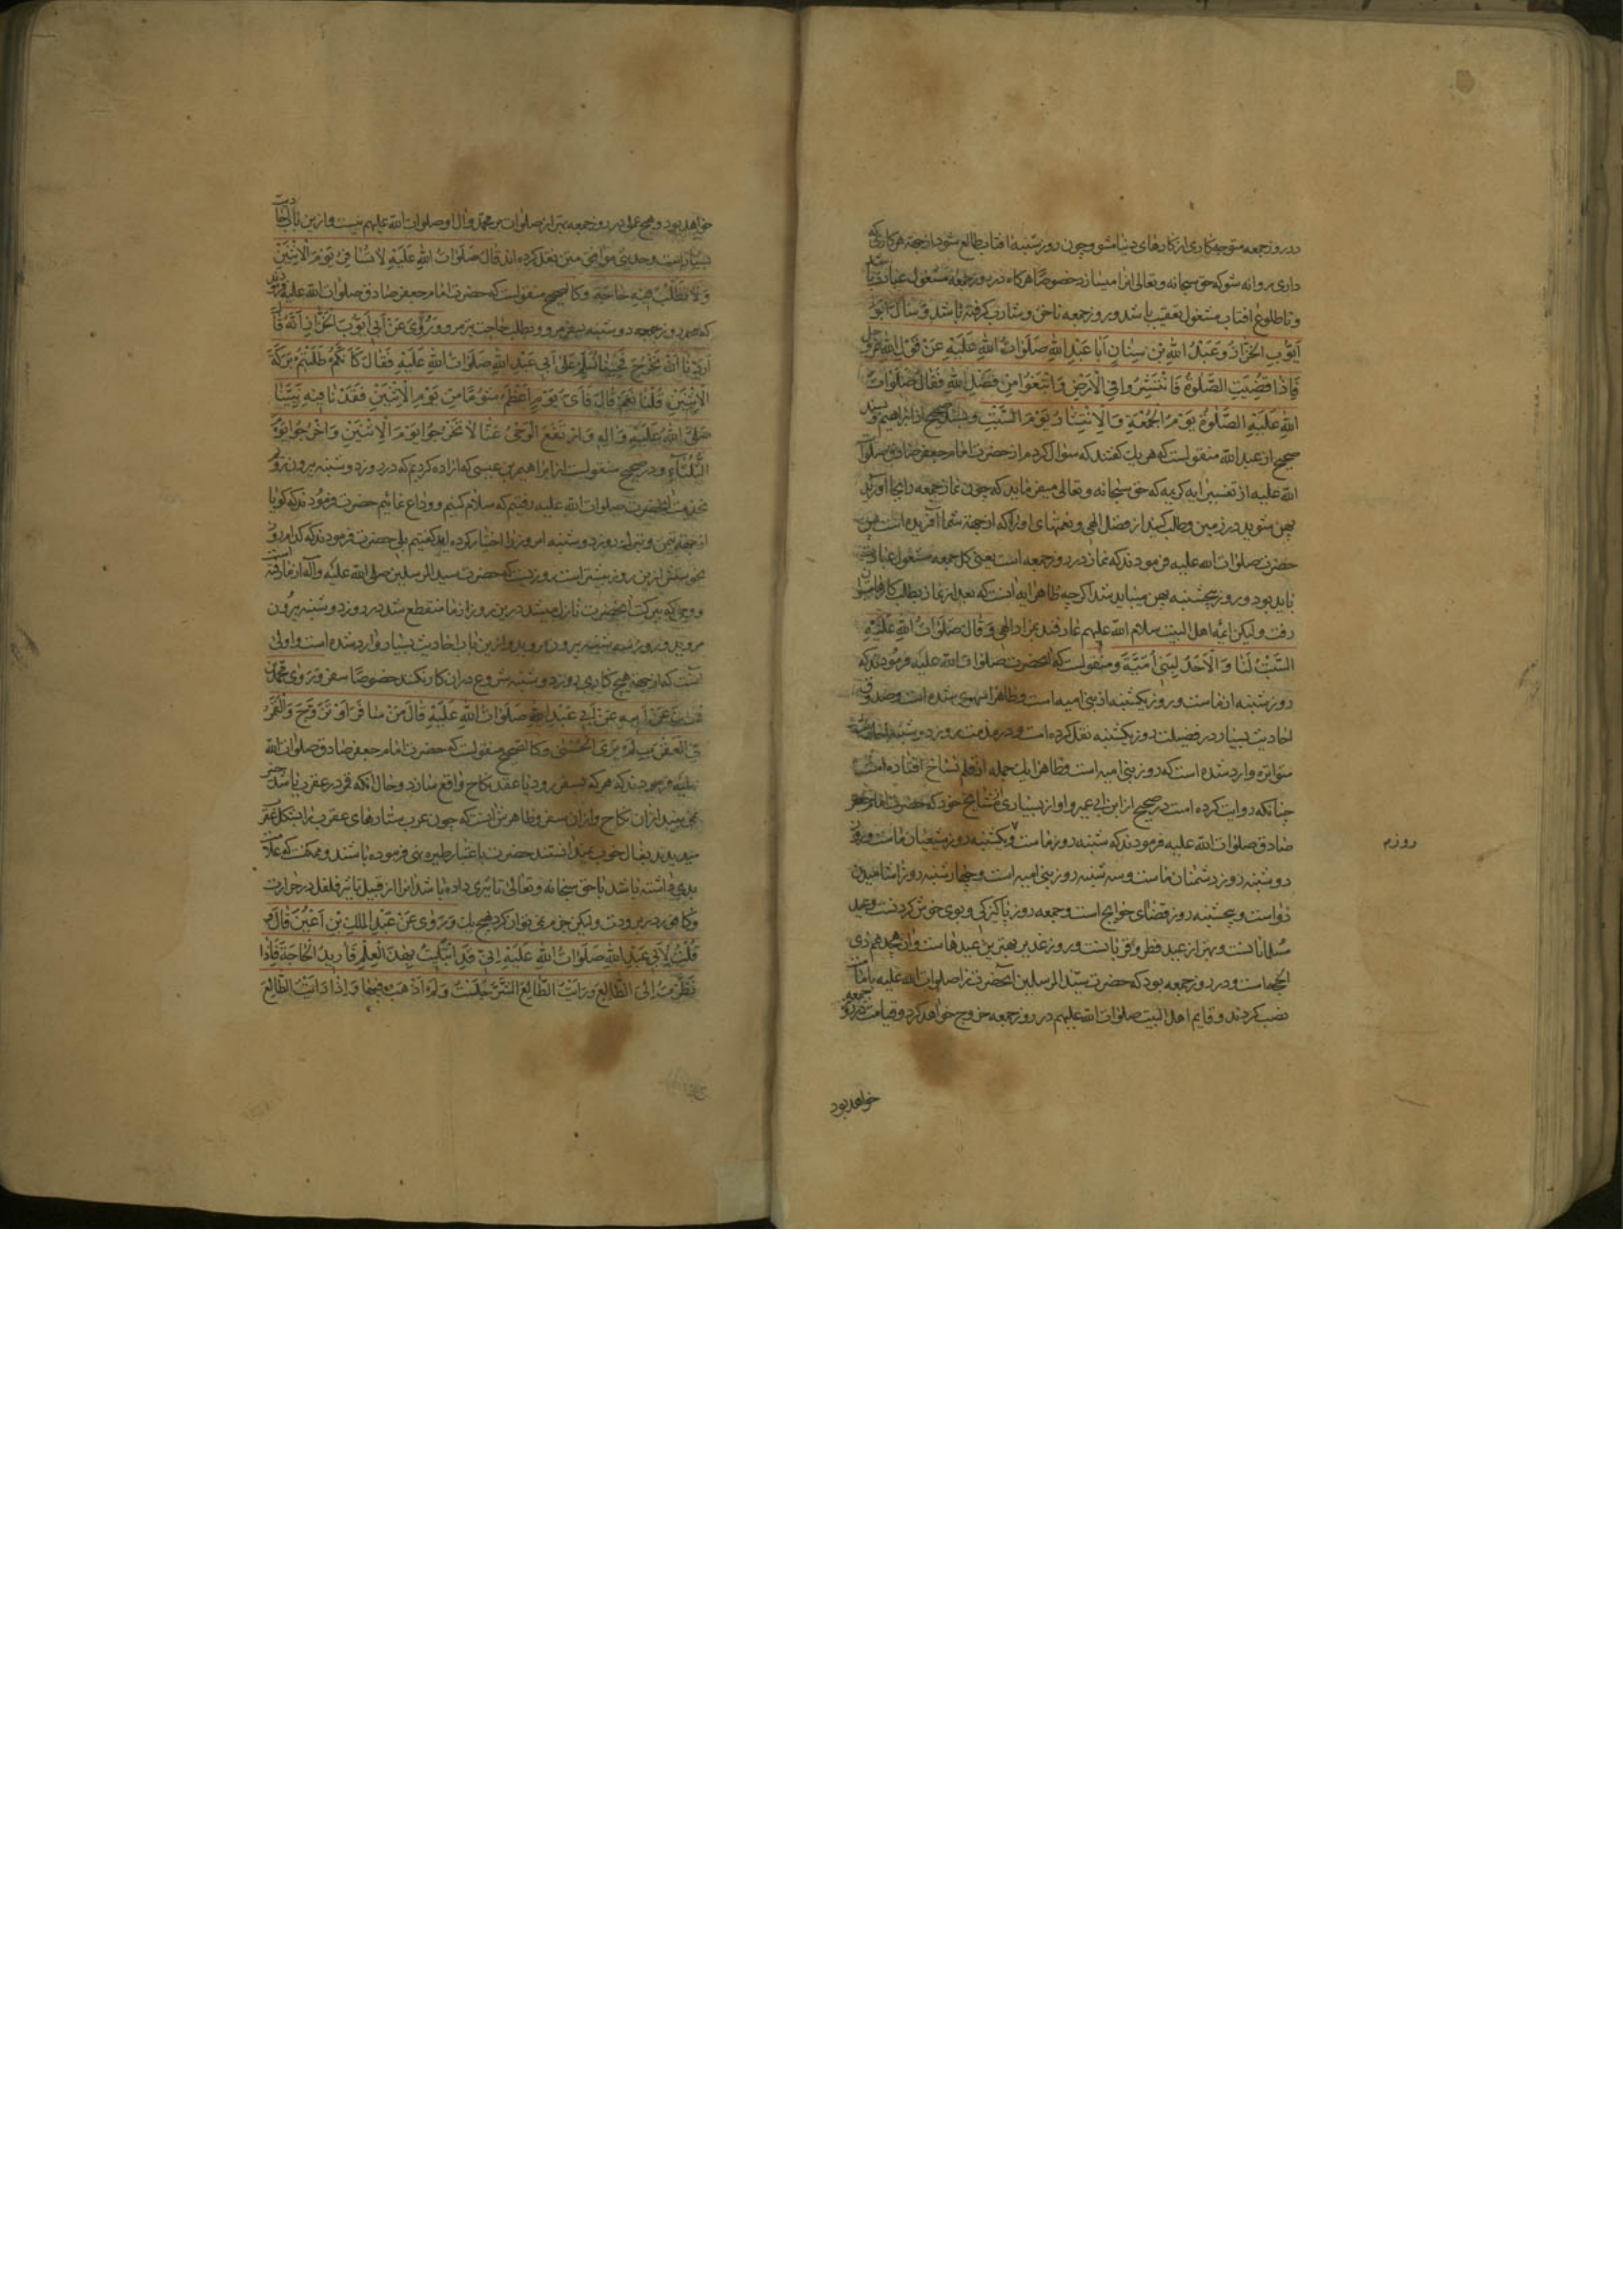 در روز جمعه متوجه کاری از کارهای دنیا مشو و چون روز شنبه افتاب طالع شود از جهة هر کاری که
داری روانه شو که حق سبحانه و تعالی انرا میسازد خصوصا هرکاه در روز جمعه مشغول عبادت باشد
و تا طلوع افتاب مشغول تعقیب باشد و روز جمعه ناخن و شارب کرفته باشد وَ سَأَلَ اَبُو
اَیُّوبِ الْخَزّازُ وَ عَبْدُ اللهِ بْنِ سِنانٍ اَبا عَبْدِ اللهِ صَلَواتُ اللهِ عَلَیْهِ عَنْ قَوْلِ اللهِ عَزَّ وَ جَلَّ
فَاِذا قُضِیَتِ الصَّلٰوةُ فَانْتَشِرُوا فِی الْاَرْضِ وَ ابْتَغُوا مِنْ فَضْلِ اللهِ فَقالَ صَلَواتُ
اللهِ عَلَیْهِ الصَّلٰوةُ یَوْمُ الْجُمُعَةِ وَ الْاِنْتِشارُ یَوْمَ السَّبْتِ و بسند صحیح از ابراهیم و بسند
صحیح از عبد الله منقولست که هر یک کفتند که سؤال کردم از حضرت امام جعفر صادق صلوات
الله علیه از تفسیر ایه کریمه که حق سبحانه و تعالی میفرماید که چون نماز جمعه را بجا اورید
پهن شوید در زمین و طلب کنید از فضل الهی و نعمتهای او را که از جهة شما آفریده است
حضرت صلوات الله علیه فرمودند که نماز در روز جمعه است یعنی کل جمعه مشغول عبادت
باید بود و روز پنجشنبه پهن میباید شد اکرچه ظاهر ایه انست که بعد از نماز بطلب کارها میتوان
رفت و لیکن ائمه اهل البیت سلام الله علیهم عارفند بمراد الهی وَ قالَ صَلَواتُ اللهِ عَلَیْهِ
السَّبْتُ لَنا وَ الْاَحَدُ لِبَنی اُمَیَّةَ و منقولست که انحضرت صلوات الله علیه فرمودند که
روز شنبه از ماست و روز یکشنبه از بنی امیه است و ظاهرا سهوی شده است و صدوق
احادیث بسیار در فضیلت روز یکشنبه نقل کرده است و در مذمت روز دوشنبه احادیث
متواتره وارد شده است که روز بنی امیه است و ظاهرا یک جمله از قلم نساخ افتاده است
چنانکه روایت کرده است در صحیح از ابن ابی عمیر و او از بسیاری از مشایخ خود که حضرت امام جعفر
صادق صلوات الله علیه فرمودند که شنبه روز ماست و یکشنبه روز شیعیان ماست و روز
دوشنبه روز دشمنان ماست و سه شنبه روز بنی امیه است و چهارشنبه روز اشامیدن
دواست و پنجشنبه روز قضای حوایج است و جمعه روز پاکیزکی و بوی خوش کردنست و عید
مسلمانانست و بهتر از عید فطر و قربانست و روز غدیر بهترین عیدهاست و ان هجدهم ذی
الحجه است و در روز جمعه بود که حضرت سید المرسلین انحضرت را صلوات الله علیه بامامت
نصب کردند و قایم اهل البیت صلوات الله علیهم در روز جمعه خروج خواهد کرد و قیامت در روز جمعه
خواهد بود
خواهد بود و هیچ عملی در روز جمعه بهتر از صلوات بر محمد و ال او صلوات الله علیهم نیست و ازین باب احادیث
بسیار است و حدیثی موافق متن نقل کرده اند قالَ صَلَواتُ اللهِ عَلَیْهِ لا تُسافِرْ یَوْمَ الْاِثْنَیْنِ
وَ لا تَطْلُبْ فیهِ حاجَةً و کالصحیح منقولست که حضرت امام جعفر صادق صلوات الله علیه فرمودند
که در روز دوشنبه بسفر مرو و بطلب حاجت مرو وَ رُوِیَ عَنْ اَبی اَیُّوبَ الْخَزّازِ اَنَّهُ قالَ
اَرَدْنا اَنْ نَخْرُجَ فَجِئْنا نُسَلِّمُ عَلیٰ اَبی عَبْدِ اللهِ صَلَواتُ اللهِ عَلَیْهِ فَقالَ کَاَنَّکُمْ طَلَبْتُمْ بَرَکَةَ
الْاِثْنَیْنِ قُلْنا نَعَمْ قالَ فَاَیُّ یَوْمٍ اَعْظَمُ شُؤْمًا مِنْ یَوْمِ الْاِثْنَیْنِ فَقَدْنا فیهِ نَبِیَّنا
صَلَّی اللهُ عَلَیْهِ وَ الِهِ وَ ارْتَفَعَ الْوَحْیُ عَنّا لا تَخْرُجُوا یَوْمَ الْاِثْنَیْنِ وَ اخْرُجُوا یَوْمَ
الثُّلَثاءِ و در صحیح منقولست از ابراهیم بن عیسی که اراده کردیم که در روز دوشنبه بیرون رویم
بخدمت انحضرت صلوات الله علیه رفتیم که سلام کنیم و وداع نمائیم حضرت فرمودند که کویا
از جهة یمن و تبرک روز دوشنبه امروز را اختیار کرده اید کفتیم بلی حضرت فرمودند که کدام روز
نحوستش ازین روز بیشتر است روزیست که حضرت سید المرسلین صلی الله علیه و آله از ما رفته است
و وحی که ببرکت انحضرت نازل میشد درین روز از ما منقطع شد در روز دوشنبه بیرون
مروید و روز سه شنبه بیرون روید و ازین باب احادیث بسیار وارد شده است و اولی
انست که از جهة هیچ کاری روز دوشنبه شروع در ان کار نکنند خصوصا سفر وَ رَویٰ مُحَمَّدُ
عَنْ اَبیهِ عَنْ اَبی عَبْدِ اللهِ صَلَواتُ اللهِ عَلَیْهِ قالَ مَنْ سافَرَ اَوْ تَزَوَّجَ وَ الْقَمَرُ
فِی الْعَقْرَبِ لَمْ یَرَ الْحُسْنیٰ و کالصحیح منقولست که حضرت امام جعفر صادق صلوات الله
علیه فرمودند که هر که بسفر رود یا عقد نکاح واقع سازد و حال انکه قمر در عقرب باشد خیر
نمی بیند از ان نکاح و از ان سفر و ظاهرش انست که چون عرب ستارهای عقرب را بشکل عقرب
میدیدند بفال خوب نمیدانستند حضرت باعتبار طیره نهی فرموده باشند و ممکنست که
بدی داشته باشد یا حق سبحانه و تعالی تاثیری داده باشد انرا از قبیل تاثیر فلفل در حرارت
و کافور در برودت و لیکن جزم نمی توان کرد بهیچ یک وَ رُوِیَ عَنْ عَبْدِ الْمَلِکِ بْنِ اَعْیَنَ قالَ
قُلْتُ لِاَبی عَبْدِ اللهِ صَلَواتُ اللهِ عَلَیْهِ اِنّی قَدِ ابْتُلیتُ بِهٰذَا الْعِلْمِ فَاُریدُ الْحاجَةَ فَاِذا
نَظَرْتُ اِلَی الطّالِعِ وَ رَاَیْتُ الطّالِعَ الشَّرَّ جَلَسْتُ وَ لَمْ اَذْهَبْ فیها وَ اِذا رَاَیْتُ الطّالِعَ